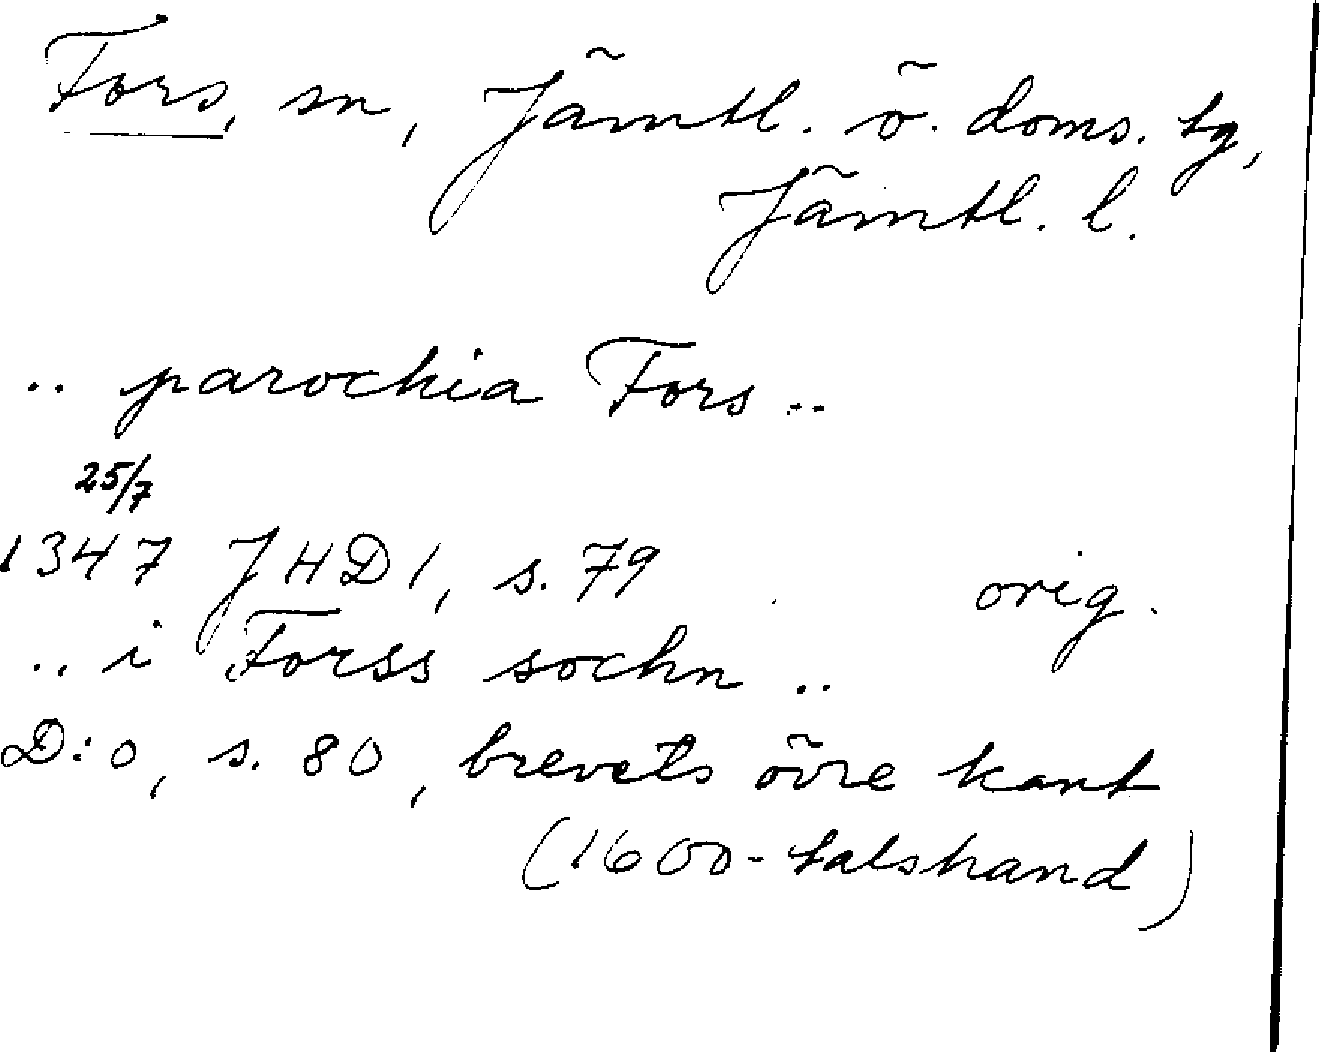 Fors, sn, Jämtl. ö. doms. tg,
Jämtl. l.
.. parochia Fors ..
25/7
1347 JHD 1, s. 79 orig.
.. i Forss sochn ..
D:o, s. 80, brevets övre kant
(1600-talshand)